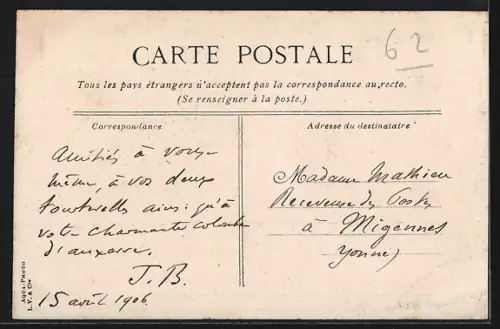 62
CARTE POSTALE
Tous les pays étrangers n'acceptent pas la correspondance au recto.
(Se renseigner à la poste.)
Correspondance
Adresse du destinataire
Amitiés à vous-
même, à vos deux
tourterelles ainsi qu'à
votre charmante colombe
d'auxerre.
J. B.
15 août 1906
Madame Mathieu
Receveuse des Postes
à Migennes
Yonne)
AQUA-PHOTO
L. V. & Cie